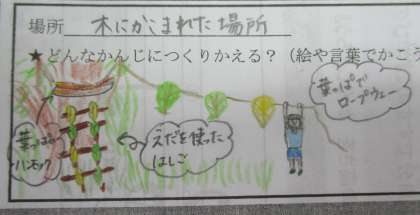 場所 木にかこまれた場所
★どんなかんじにつくりかえる？（絵や言葉でかこう
葉っぱで
ロープウェー
葉っぱの
ハンモック
えだを使った
はしご